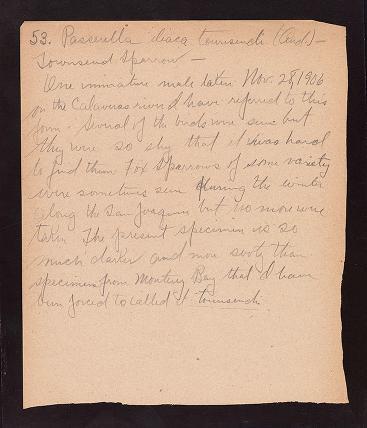 53. Passerella iliaca townsendi (Aud.) —
Townsend Sparrow —
One immature male taken Nov. 28, 1906
on the Calaveras river I have referred to this
form. Several of the birds were seen but
they were so shy that it was hard
to find them. Fox Sparrows of some variety
were sometimes seen during the winter
along the San Joaquin but no more were
taken. The present specimen is so
much darker and more sooty than
specimens from Monterey Bay that I have
been forced to called it townsendi.